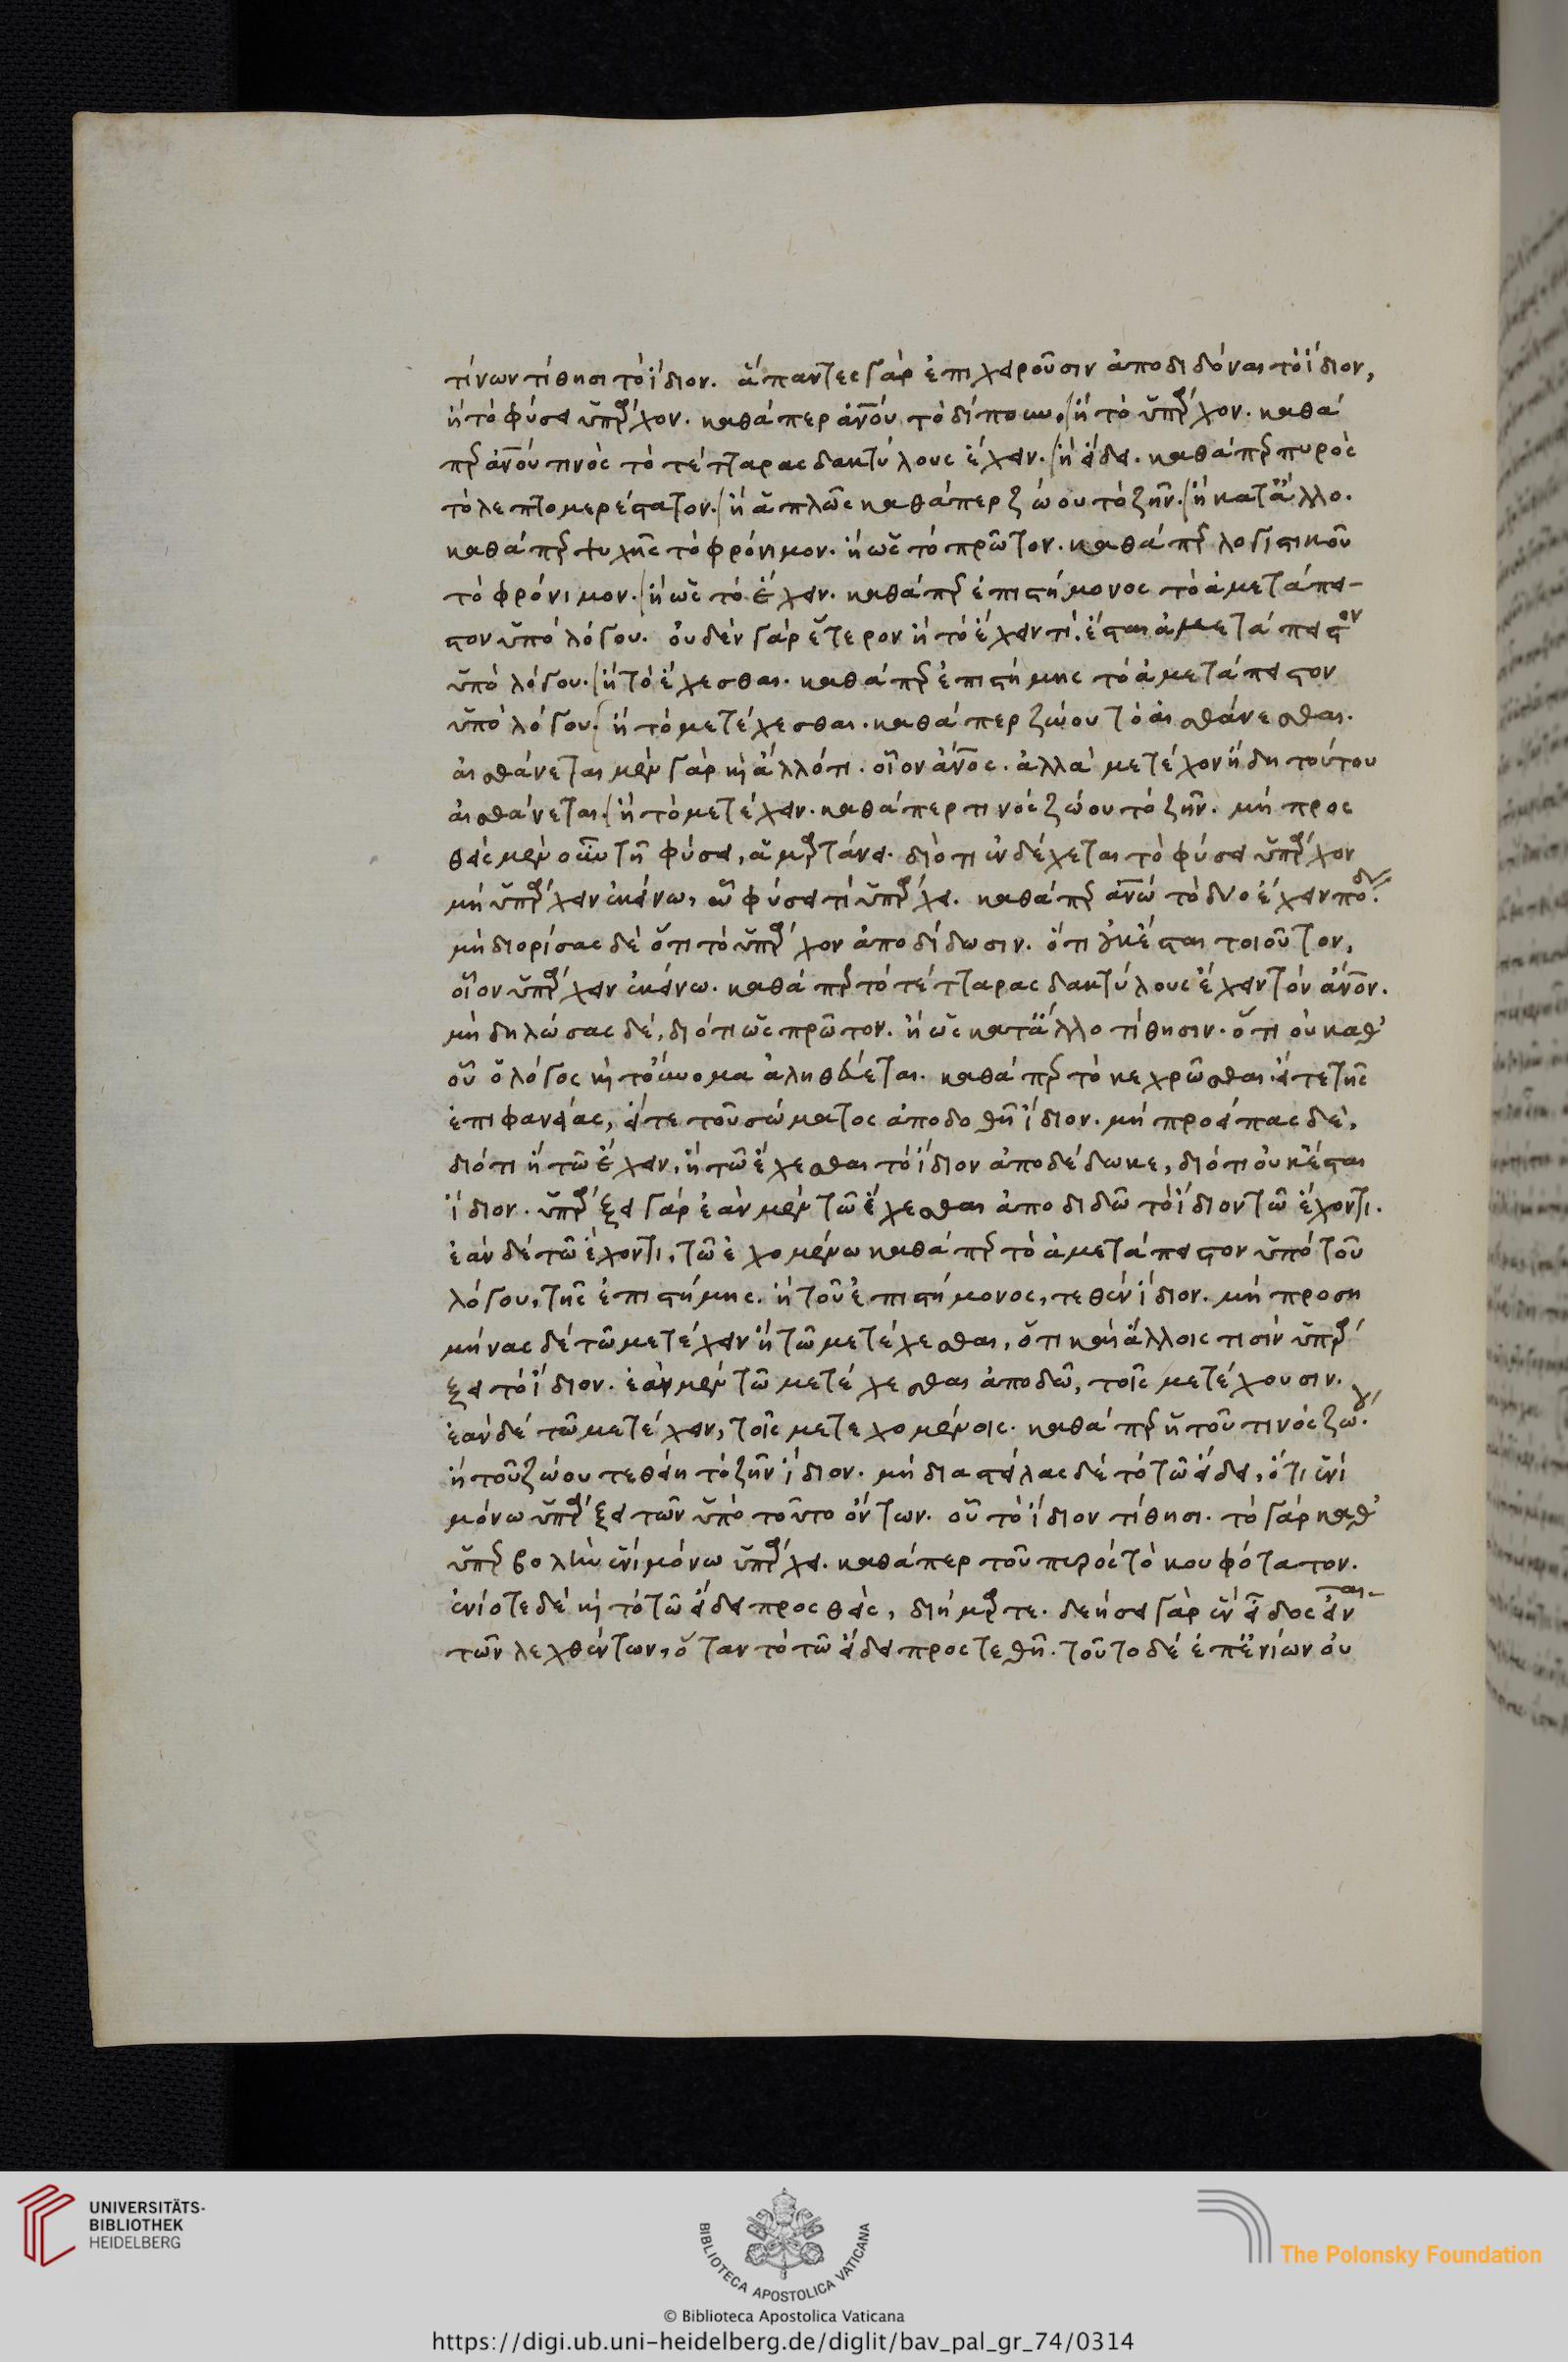 τίνων τίθησι τὸ ἴδιον. ἅπαντες γὰρ ἐπιχειροῦσιν ἀποδιδόναι τὸ ἴδιον,
ἢ τὸ φύσει ὑπάρχον. καθάπερ ἀνου τὸ δίπουν. ἢ τὸ ὑπάρχον. καθά
περ ἀνου τινὸς τὸ τέτταρας δακτύλους ἔχειν. ἢ εἴδει. καθάπερ πυρὸς
τὸ λεπτομερέστατον. ἢ ἁπλῶς καθάπερ ζώου τὸ ζῆν. ἢ κατ' ἄλλο.
καθάπερ ψυχῆς τὸ φρόνιμον. ἢ ὡς τὸ πρῶτον. καθάπερ λογιστικοῦ
τὸ φρόνιμον. ἢ ὡς τὸ ἔχειν. καθάπερ ἐπιστήμονος τὸ ἀμετάπει-
στον ὑπὸ λόγου. οὐδὲν γὰρ ἕτερον ἢ τὸ ἔχειν τί. ἔσται ἀμετάπειστον
ὑπὸ λόγου. ἢ τὸ ἔχεσθαι. καθάπερ ἐπιστήμης τὸ ἀμετάπειστον
ὑπὸ λόγου. ἢ τὸ μετέχεσθαι. καθάπερ ζώου τὸ αἰσθάνεσθαι.
αἰσθάνεται μὲν γὰρ καὶ ἄλλό τι. οἷον ἄνος. ἀλλὰ μετέχον ἤδη τούτου
αἰσθάνεται. ἢ τὸ μετέχειν. καθάπερ τινὸς ζώου τὸ ζῆν. μὴ προσ
θεὶς μὲν οὖν τῆ φύσει, ἁμαρτάνει. διότι ἐνδέχεται τὸ φύσει ὑπάρχον
μὴ ὑπάρχειν ἐκείνω, ᾧ φύσει τί ὑπάρχει. καθάπερ ἀνω τὸ δύο ἔχειν πόδ.
μὴ διορίσας δὲ ὅτι τὸ ὑπάρχον ἀποδίδωσιν. ὅτι οὐκ ἔσται τοιοῦτον,
οἷον ὑπάρχειν ἐκείνω. καθάπερ τὸ τέτταρας δακτύλους ἔχειν τὸν ἄνον.
μὴ δηλώσας δὲ, διότι ὡς πρῶτον. ἢ ὡς κατ' ἄλλο τίθησιν. ὅτι οὐ καθ'
οὗ ὁ λόγος καὶ τοὔνομα ἀληθεύεται. καθάπερ τὸ κεχρῶσθαι. εἴτε τῆς
ἐπιφανείας, εἴτε τοῦ σώματος ἀποδοθῆ ἴδιον. μὴ προείπας δὲ,
διότι ἢ τῶ ἔχειν, ἢ τῶ ἔχεσθαι τὸ ἴδιον ἀποδέδωκε, διότι οὐκ ἔσται
ἴδιον. ὑπάρξει γὰρ ἐὰν μὲν τῶ ἔχεσθαι ἀποδιδῶ τὸ ἴδιον τῶ ἔχοντι.
ἐὰν δὲ τῶ ἔχοντι, τῶ ἐχομένω καθάπερ τὸ ἀμετάπειστον ὑπὸ τοῦ
λόγου, τῆς ἐπιστήμης. ἢ τοῦ ἐπιστήμονος, τεθὲν ἴδιον. μὴ προση
μήνας δὲ τῶ μετέχειν ἢ τῶ μετέχεσθαι, ὅτι καὶ ἄλλοις τισὶν ὑπάρ
ξει τὸ ἴδιον. ἐὰν μὲν τῶ μετέχεσθαι ἀποδῶ, τοῖς μετέχουσιν.
ἐὰν δὲ τῶ μετέχειν, τοῖς μετεχομένοις. καθάπερ εἰ τοῦ τινὸς ζώου.
ἢ τοῦ ζώου τεθείη τὸ ζῆν ἴδιον. μὴ διαστείλας δὲ τὸ τῶ εἴδει, ὅτι ἑνὶ
μόνω ὑπάρξει τῶν ὑπὸ τοῦτο ὄντων. οὗ τὸ ἴδιον τίθησι. τὸ γὰρ καθ'
ὑπερβολὴν ἑνὶ μόνω ὑπάρχει. καθάπερ τοῦ πυρὸς τὸ κουφότατον.
ἐνίοτε δὲ καὶ τὸ τῶ εἴδει προσθεὶς, διήμαρτε. δεήσει γὰρ ἓν εἶδος εἶναι
τῶν λεχθέντων, ὅταν τὸ τῶ εἴδει προστεθῆ. τοῦτο δὲ ἐπ' ἐνίων οὐ
UNIVERSITÄTS-
BIBLIOTHEK
HEIDELBERG
BIBLIOTECA APOSTOLICA VATICANA
The Polonsky Foundation
© Biblioteca Apostolica Vaticana
https://digi.ub.uni-heidelberg.de/diglit/bav_pal_gr_74/0314